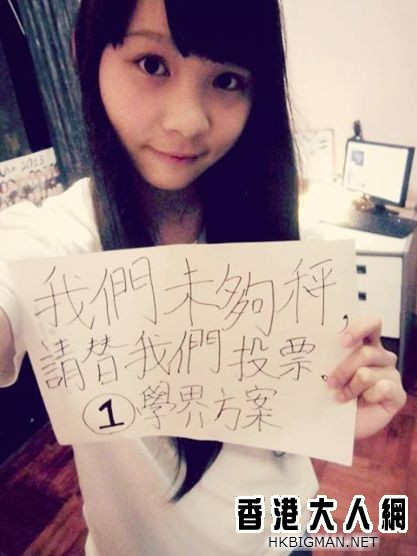 2013
我們未夠秤,
請替我們投票。
①學界方案
香港大人網
HKBIGMAN.NET